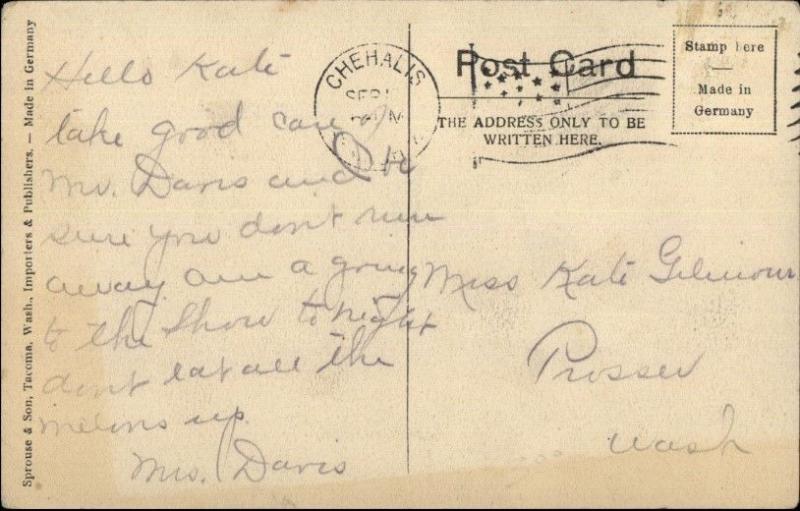 Hello Kate
take good care of
Mr. Davis and be
sure you don't run
away am a going
to the Show to night
don't eat all the
melons up.
Mrs. Davis
Post Card
THE ADDRESS ONLY TO BE
WRITTEN HERE.
CHEHALIS
SEP
Stamp here
Made in
Germany
Miss Kate Gilmour
Prosser
Wash
Sprouse & Son, Tacoma, Wash., Importers & Publishers. — Made in Germany